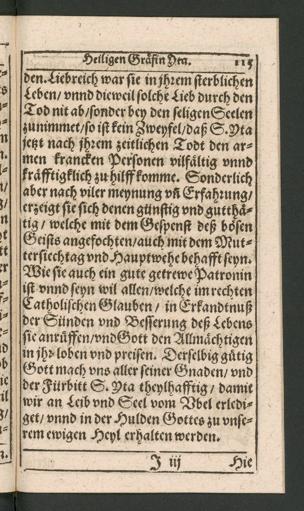 Heiligen Gräfin Yta. 115
den. Liebreich war sie in jhrem sterblichen
Leben/ vnnd dieweil solche Lieb durch den
Tod nit ab/ sonder bey den seligen Seelen
zunimmet/ so ist kein Zweyfel/ daß S. Yta
jetzt nach jhrem zeitlichen Todt den ar-
men krancken Personen vilfältig vnnd
kräfftigklich zu hilff komme. Sonderlich
aber nach viler meynung vñ Erfahrung/
erzeigt sie sich denen günstig vnd gutthä-
tig/ welche mit dem Gespenst deß bösen
Geists angefochten/ auch mit dem Mut-
tersiechtag vnd Hauptwehe behafft seyn.
Wie sie auch ein gute getrewe Patronin
ist vnnd seyn wil allen/ welche im rechten
Catholischen Glauben/ in Erkandtnuß
der Sünden vnd Besserung deß Lebens
sie anrüffen/ vnd Gott den Allmächtigen
in jhr loben vnd preisen. Derselbig gütig
Gott mach vns aller seiner Gnaden/ vnd
der Fürbitt S. Yta theylhafftig/ damit
wir an Leib vnd Seel vom Vbel erledi-
get/ vnnd in der Hulden Gottes zu vnse-
rem ewigen Heyl erhalten werden.
J iij Hie